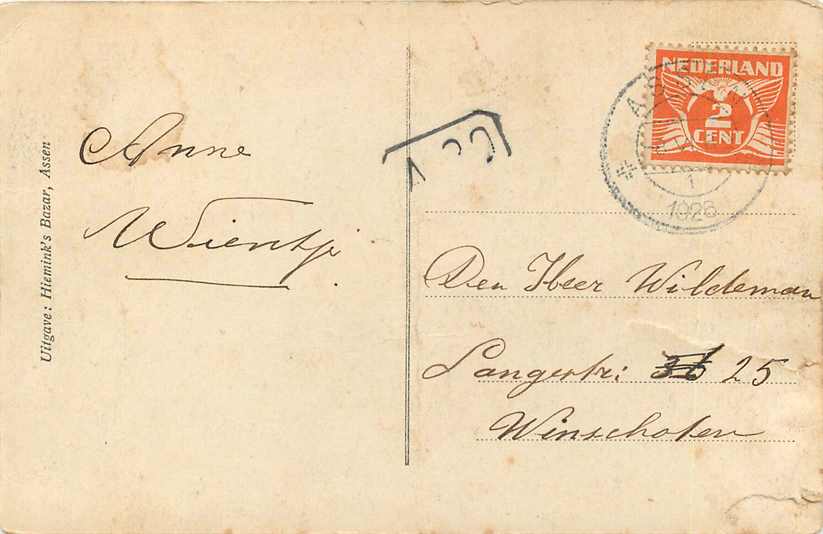 Uitgave: Hiemink's Bazar, Assen
Anne
Wientje
NEDERLAND
2
CENT
1
1926
Den Heer Wildeman
Langestr: 36 25
Winschoten